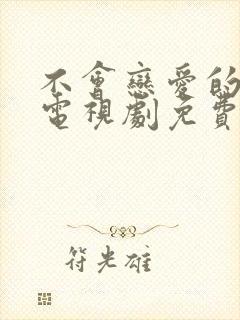 不會戀愛的
電視劇免費
符光雄